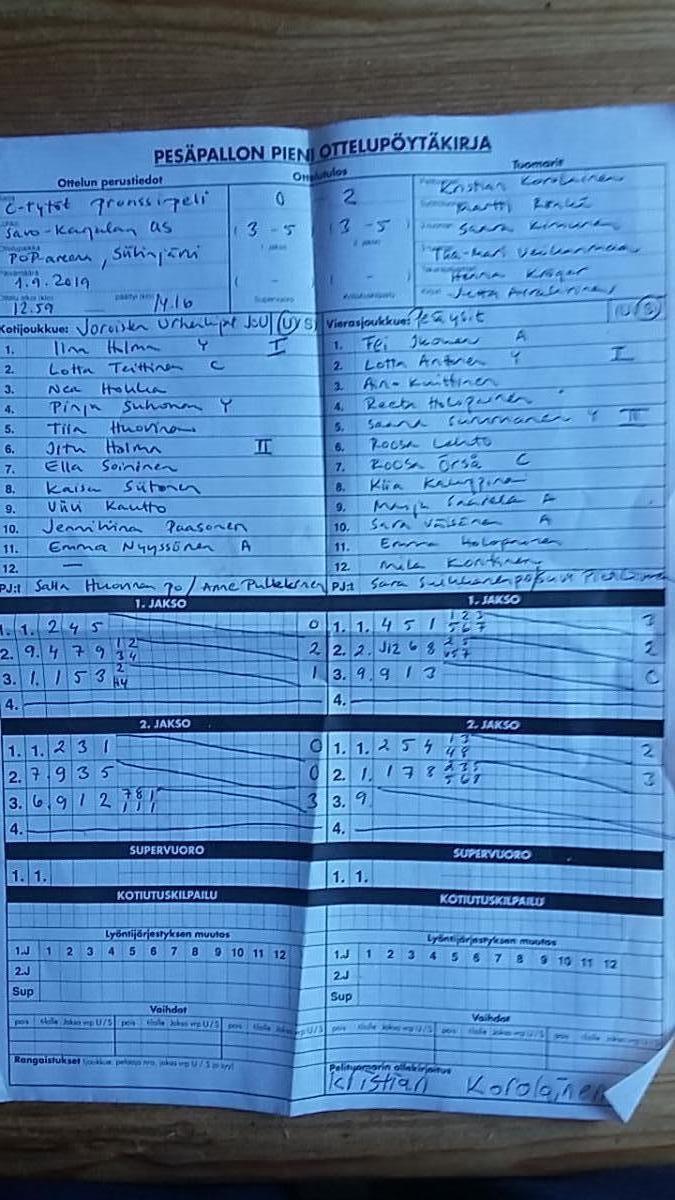 PESÄPALLON PIENI OTTELUPÖYTÄKIRJA
Ottelun perustiedot Ottelutulos Tuomarit
C-tytöt pronssipeli 0 2 Kristian Korolainen
Savo-Karjalan AS (3 - 5) (3 - 5) Martti
POP-areena, Siilinjärvi Saara Kinnunen
1.9.2019 ( - ) ( - ) Henna Kröger
12.59 14.16 Supervuoro
Kotijoukkue: Joroisten Urheilijat JoU (U/S) Vierasjoukkue: Pesäysit (U/S)
1. Iina Holma Y I 1. Fei Ikonen A
2. Lotta Teittinen C 2. Lotta Antonen Y I
3. Nea Hokka 3. Kuittinen
4. Pinja Suhonen Y 4. Reeta Holopainen
5. Tiia Huovinen 5. Y II
6. Jutu Holma II 6. Roosa Lehto
7. Ella Soininen 7. Roosa Örså C
8. Kaisa Siitonen 8. Kiia Kauppinen
9. Viivi Kautto 9. Saarela A
10. Jenniina Paasonen 10. Sara Väisänen A
11. Emma Nyyssönen A 11. Emma Holopainen
12. — 12. Mila Kontinen
PJ:t Salla Huovinen po / Anne Pulkkinen PJ:t Sara
1. JAKSO 1. JAKSO
1. 1. 2 4 5 0 1. 1. 4 5 1 1 2 3 5 6 7 3
2. 9. 4 7 9 1 2 3 4 2 2. 2. J12 6 8 2
3. 1. 1 5 3 2 1 3. 9. 9 1 3 0
4. 4.
2. JAKSO 2. JAKSO
1. 1. 2 3 1 0 1. 1. 2 5 4 1 3 4 8 2
2. 7. 9 3 5 0 2. 1. 1 7 8 2 3 5 5 6 8 3
3. 6. 9 1 2 7 8 1 1 1 1 3 3. 9
4. 4.
SUPERVUORO SUPERVUORO
1. 1. 1. 1.
KOTIUTUSKILPAILU KOTIUTUSKILPAILU
Lyöntijärjestyksen muutos Lyöntijärjestyksen muutos
1.J 1 2 3 4 5 6 7 8 9 10 11 12 1.J 1 2 3 4 5 6 7 8 9 10 11 12
2.J 2.J
Sup Sup
Vaihdot Vaihdot
pois tilalle Jakso vrp U/S pois tilalle Jakso vrp U/S pois tilalle Jakso vrp U/S pois tilalle Jakso vrp U/S pois tilalle Jakso vrp U/S pois tilalle Jakso vrp U/S
Rangaistukset (joukkue, pelaaja nro, jakso vrp U / S ja syy) Pelituomarin allekirjoitus
Kristian Korolainen